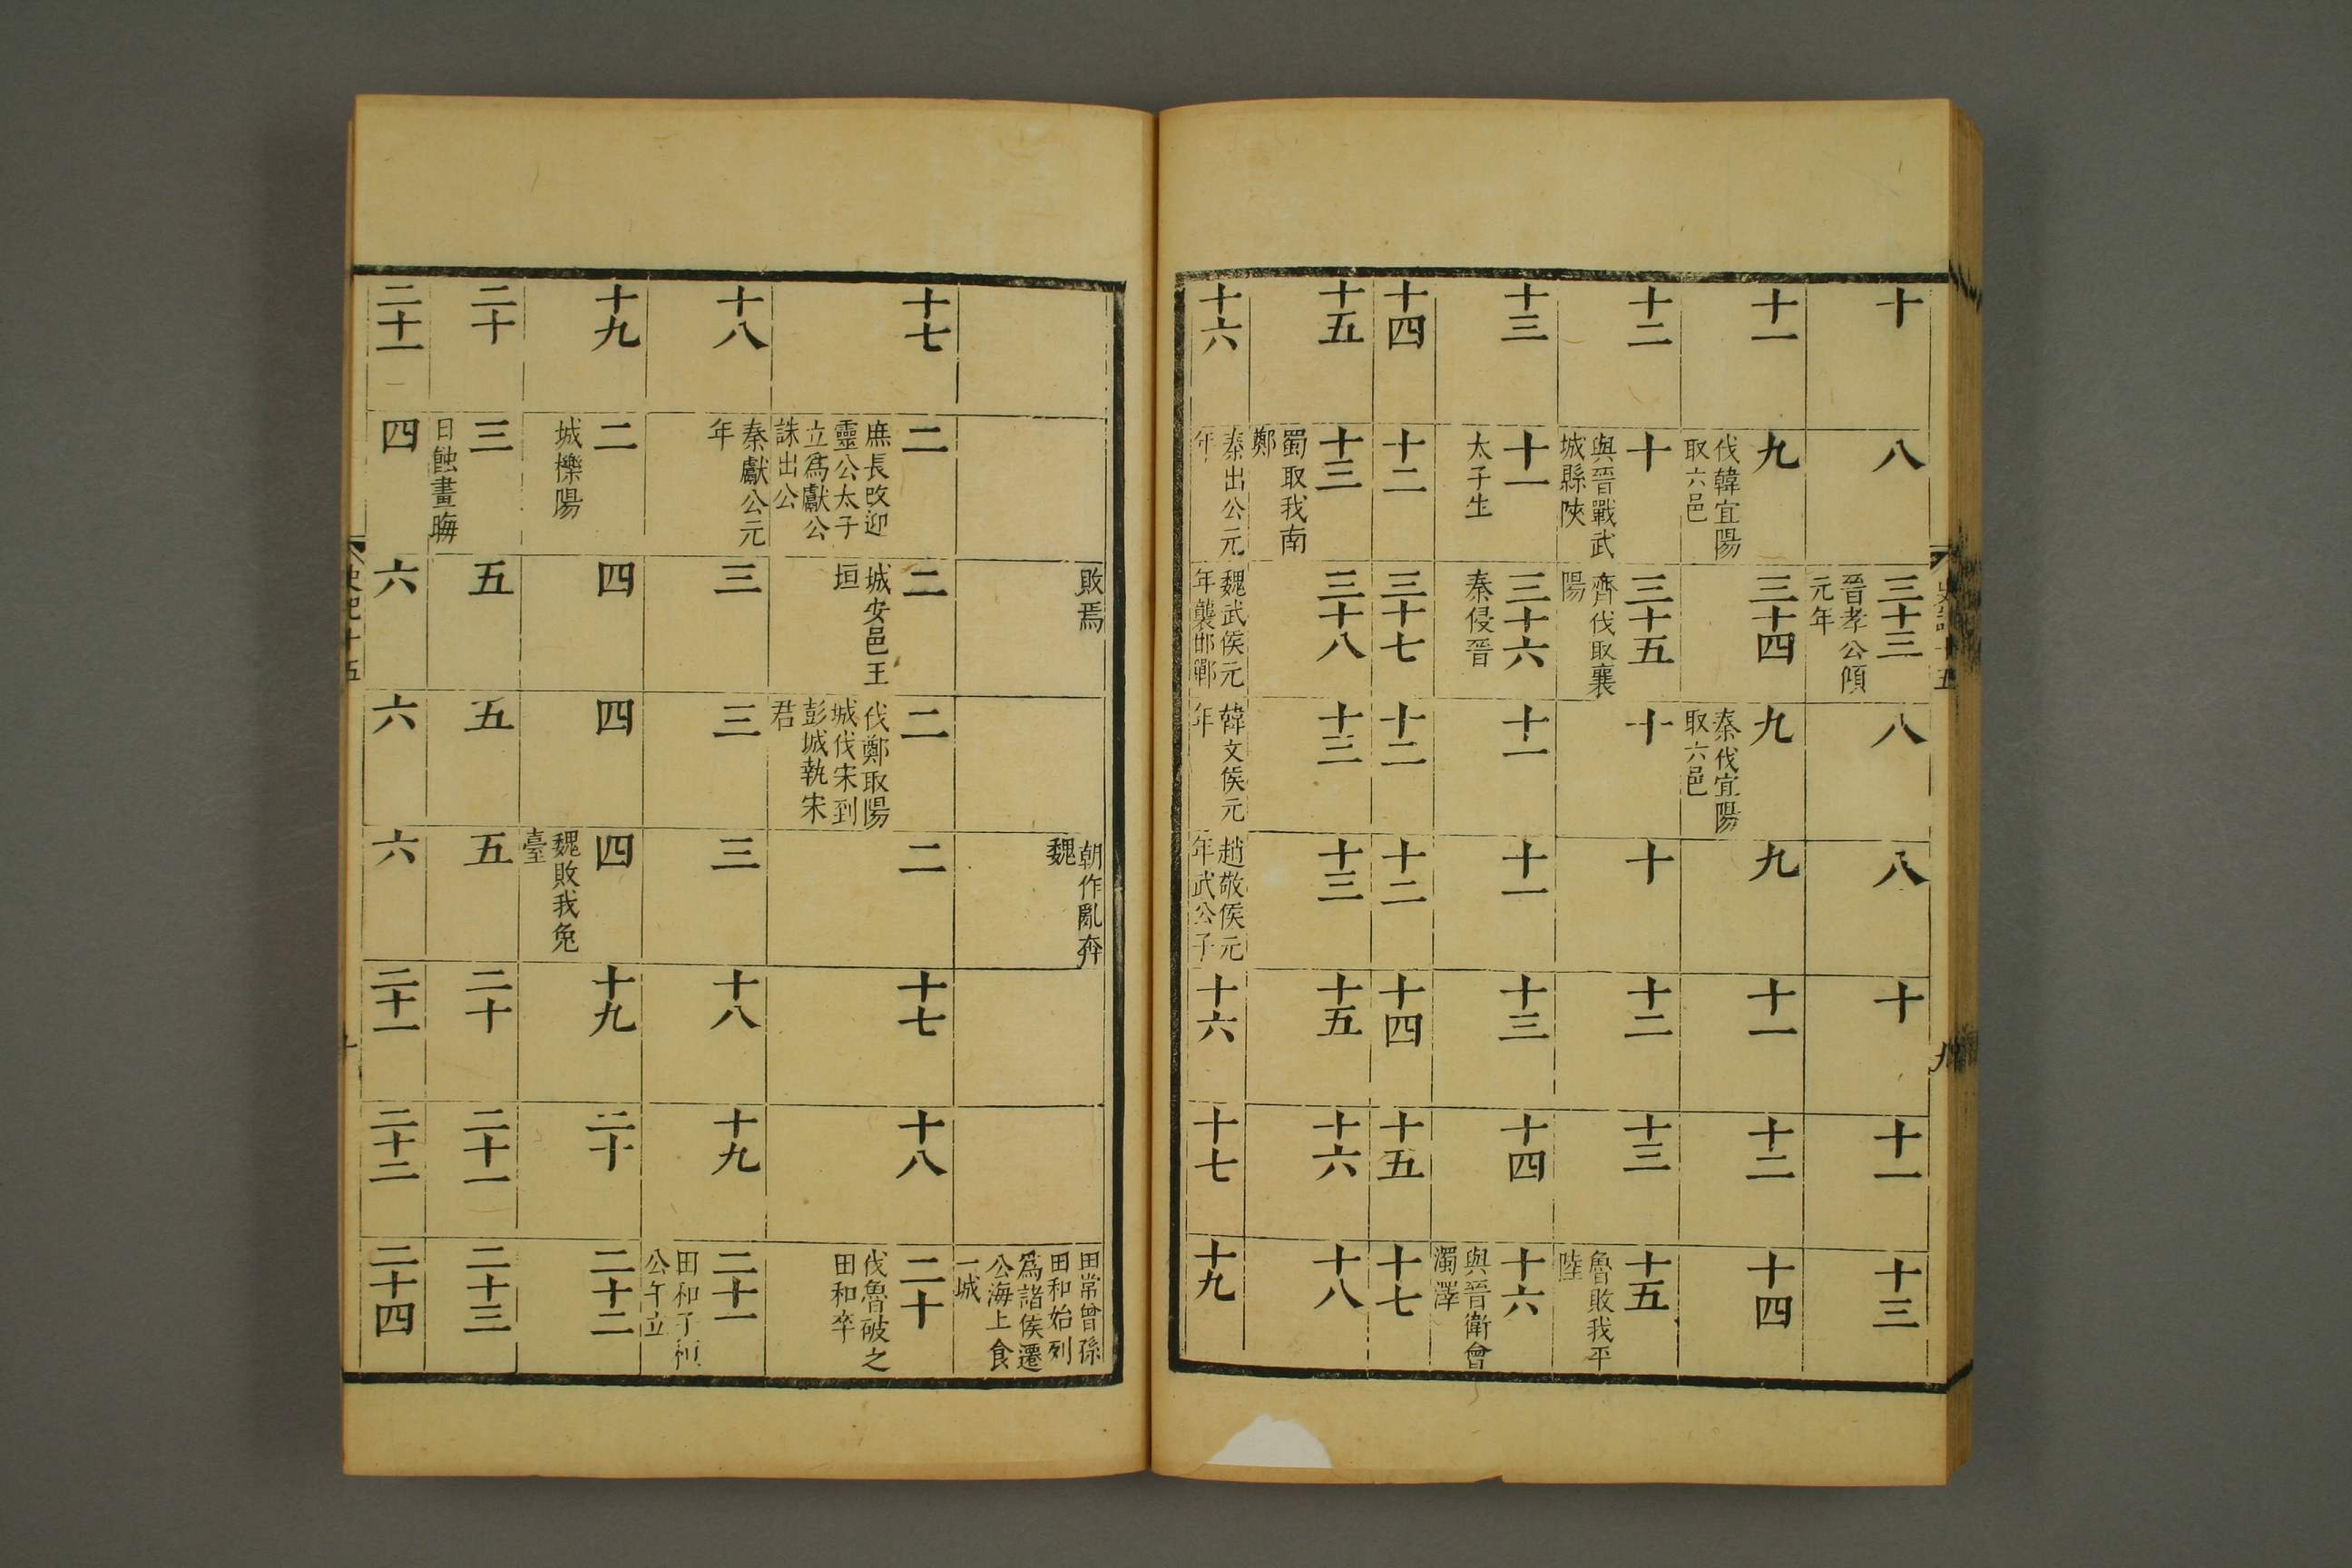 十
八
三十三
晉孝公傾
元年
八
八
十
十一
十三
十一
九
伐韓宜陽
取六邑
三十四
九
秦伐宜陽
取六邑
九
十一
十二
十四
十二
十
與晉戰武
城縣陝
三十五
齊伐取襄
陽
十
十
十二
十三
十五
魯敗我平
陸
十三
十一
太子生
三十六
秦侵晉
十一
十一
十三
十四
十六
與晉衛會
濁澤
十四
十二
三十七
十二
十二
十四
十五
十七
十五
十三
蜀取我南
鄭
三十八
十三
十三
十五
十六
十八
十六
秦出公元
年
魏武侯元
年襲邯鄲
韓文侯元
年
趙敬侯元
年武公子
十六
十七
十九
敗焉
朝作亂奔
魏
田常曾孫
田和始列
為諸侯遷
公海上食
一城
十七
二
庶長改迎
靈公太子
立為獻公
誅出公
二
城安邑王
垣
二
伐鄭取陽
城伐宋到
彭城執宋
君
二
十七
十八
二十
伐魯破之
田和卒
十八
秦獻公元
年
三
三
三
十八
十九
二十一
田和子桓
公午立
十九
二
城櫟陽
四
四
四
魏敗我兔
臺
十九
二十
二十二
二十
三
日蝕晝晦
五
五
五
二十
二十一
二十三
二十一
四
六
六
六
二十一
二十二
二十四
史記十五